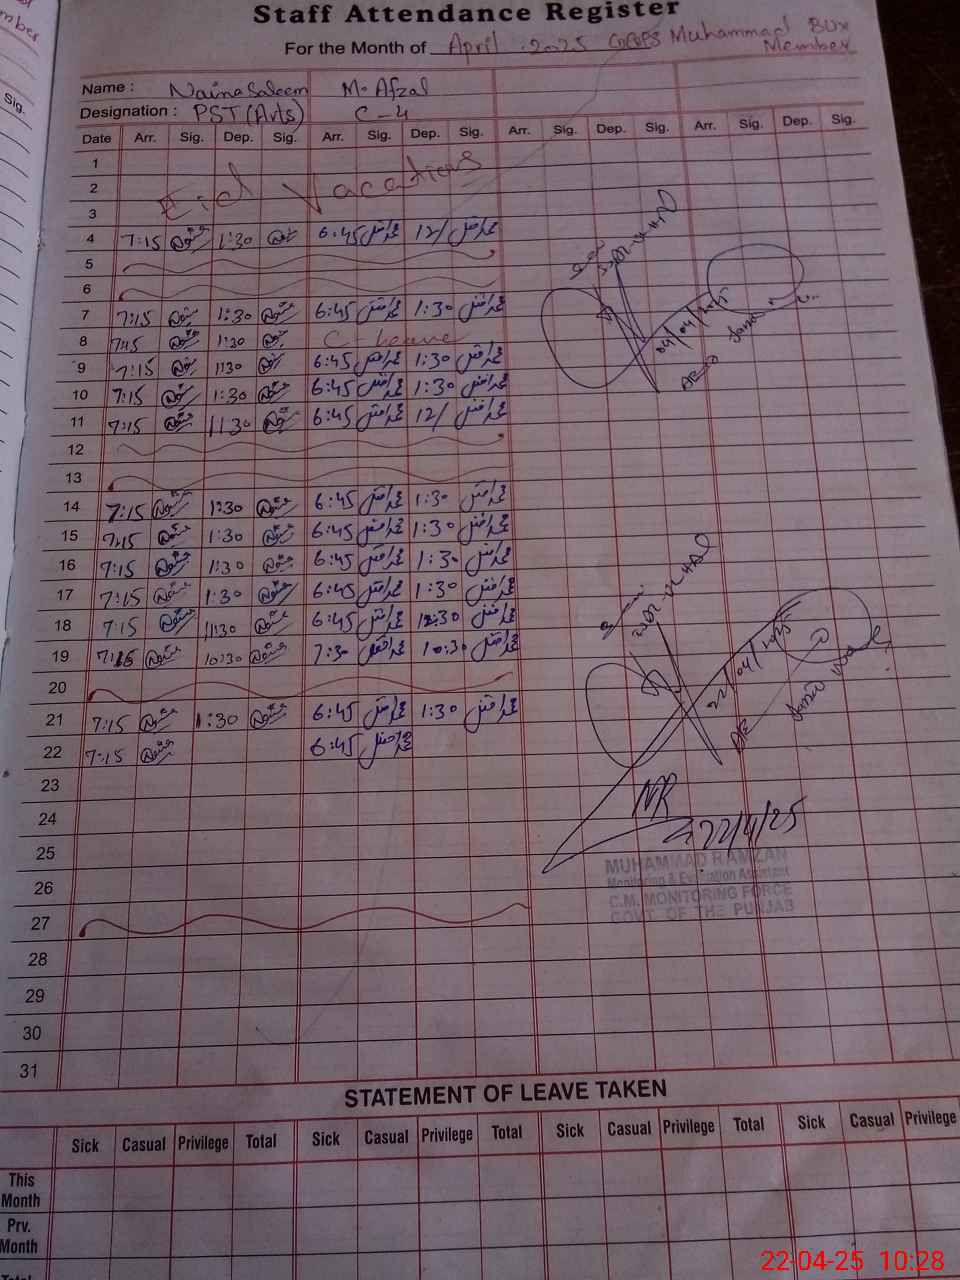 mber
Sig.
Staff Attendance Register
For the Month of April 2025 GGPS Muhammad Bux
Member
Name : Naina Saleem M. Afzal
Designation : PST (Arts) C-4
Date Arr. Sig. Dep. Sig. Arr. Sig. Dep. Sig. Arr. Sig. Dep. Sig. Arr. Sig. Dep. Sig.
1
2 Eid Vacations
3
4 7:15 1:30 6:45 محمد افضل 12/ محمد افضل
5
6
7 7:15 1:30 6:45 محمد افضل 1:30 محمد افضل
8 7:15 1:30 C-leave
9 7:15 1:30 6:45 محمد افضل 1:30 محمد افضل
10 7:15 1:30 6:45 محمد افضل 1:30 محمد افضل
11 7:15 11:30 6:45 محمد افضل 12/ محمد افضل
12
13
14 7:15 1:30 6:45 محمد افضل 1:30 محمد افضل
15 7:15 1:30 6:45 محمد افضل 1:30 محمد افضل
16 7:15 1:30 6:45 محمد افضل 1:30 محمد افضل
17 7:15 1:30 6:45 محمد افضل 1:30 محمد افضل
18 7:15 11:30 6:45 محمد افضل 12:30 محمد افضل
19 7:15 10:30 7:30 محمد افضل 10:30 محمد افضل
20
21 7:15 1:30 6:45 محمد افضل 1:30 محمد افضل
22 7:15 6:45 محمد افضل
23
24
25
26
27
28
29
30
31
04/04/2025
AEO
22/04/2025
AEO
22/4/25
MUHAMMAD RAMZAN
Monitoring & Evaluation Assistant
C.M. MONITORING FORCE
GOVT. OF THE PUNJAB
STATEMENT OF LEAVE TAKEN
Sick Casual Privilege Total Sick Casual Privilege Total Sick Casual Privilege Total Sick Casual Privilege
This
Month
Prv.
Month
Total
22-04-25 10:28